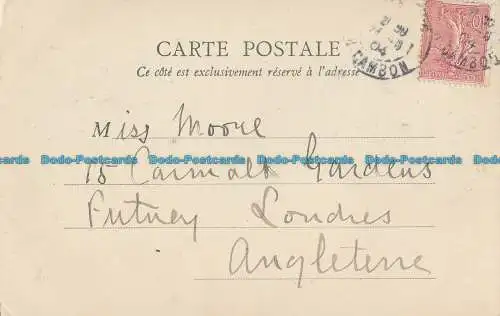 CARTE POSTALE
Ce côté est exclusivement réservé à l'adresse
CAMBON
04
Miss Moore
Dodo-Postcards Dodo-Postcards Dodo-Postcards Dodo-Postcards Dodo-Postcards
15 Carmalt Gardens
Putney Londres
Angleterre